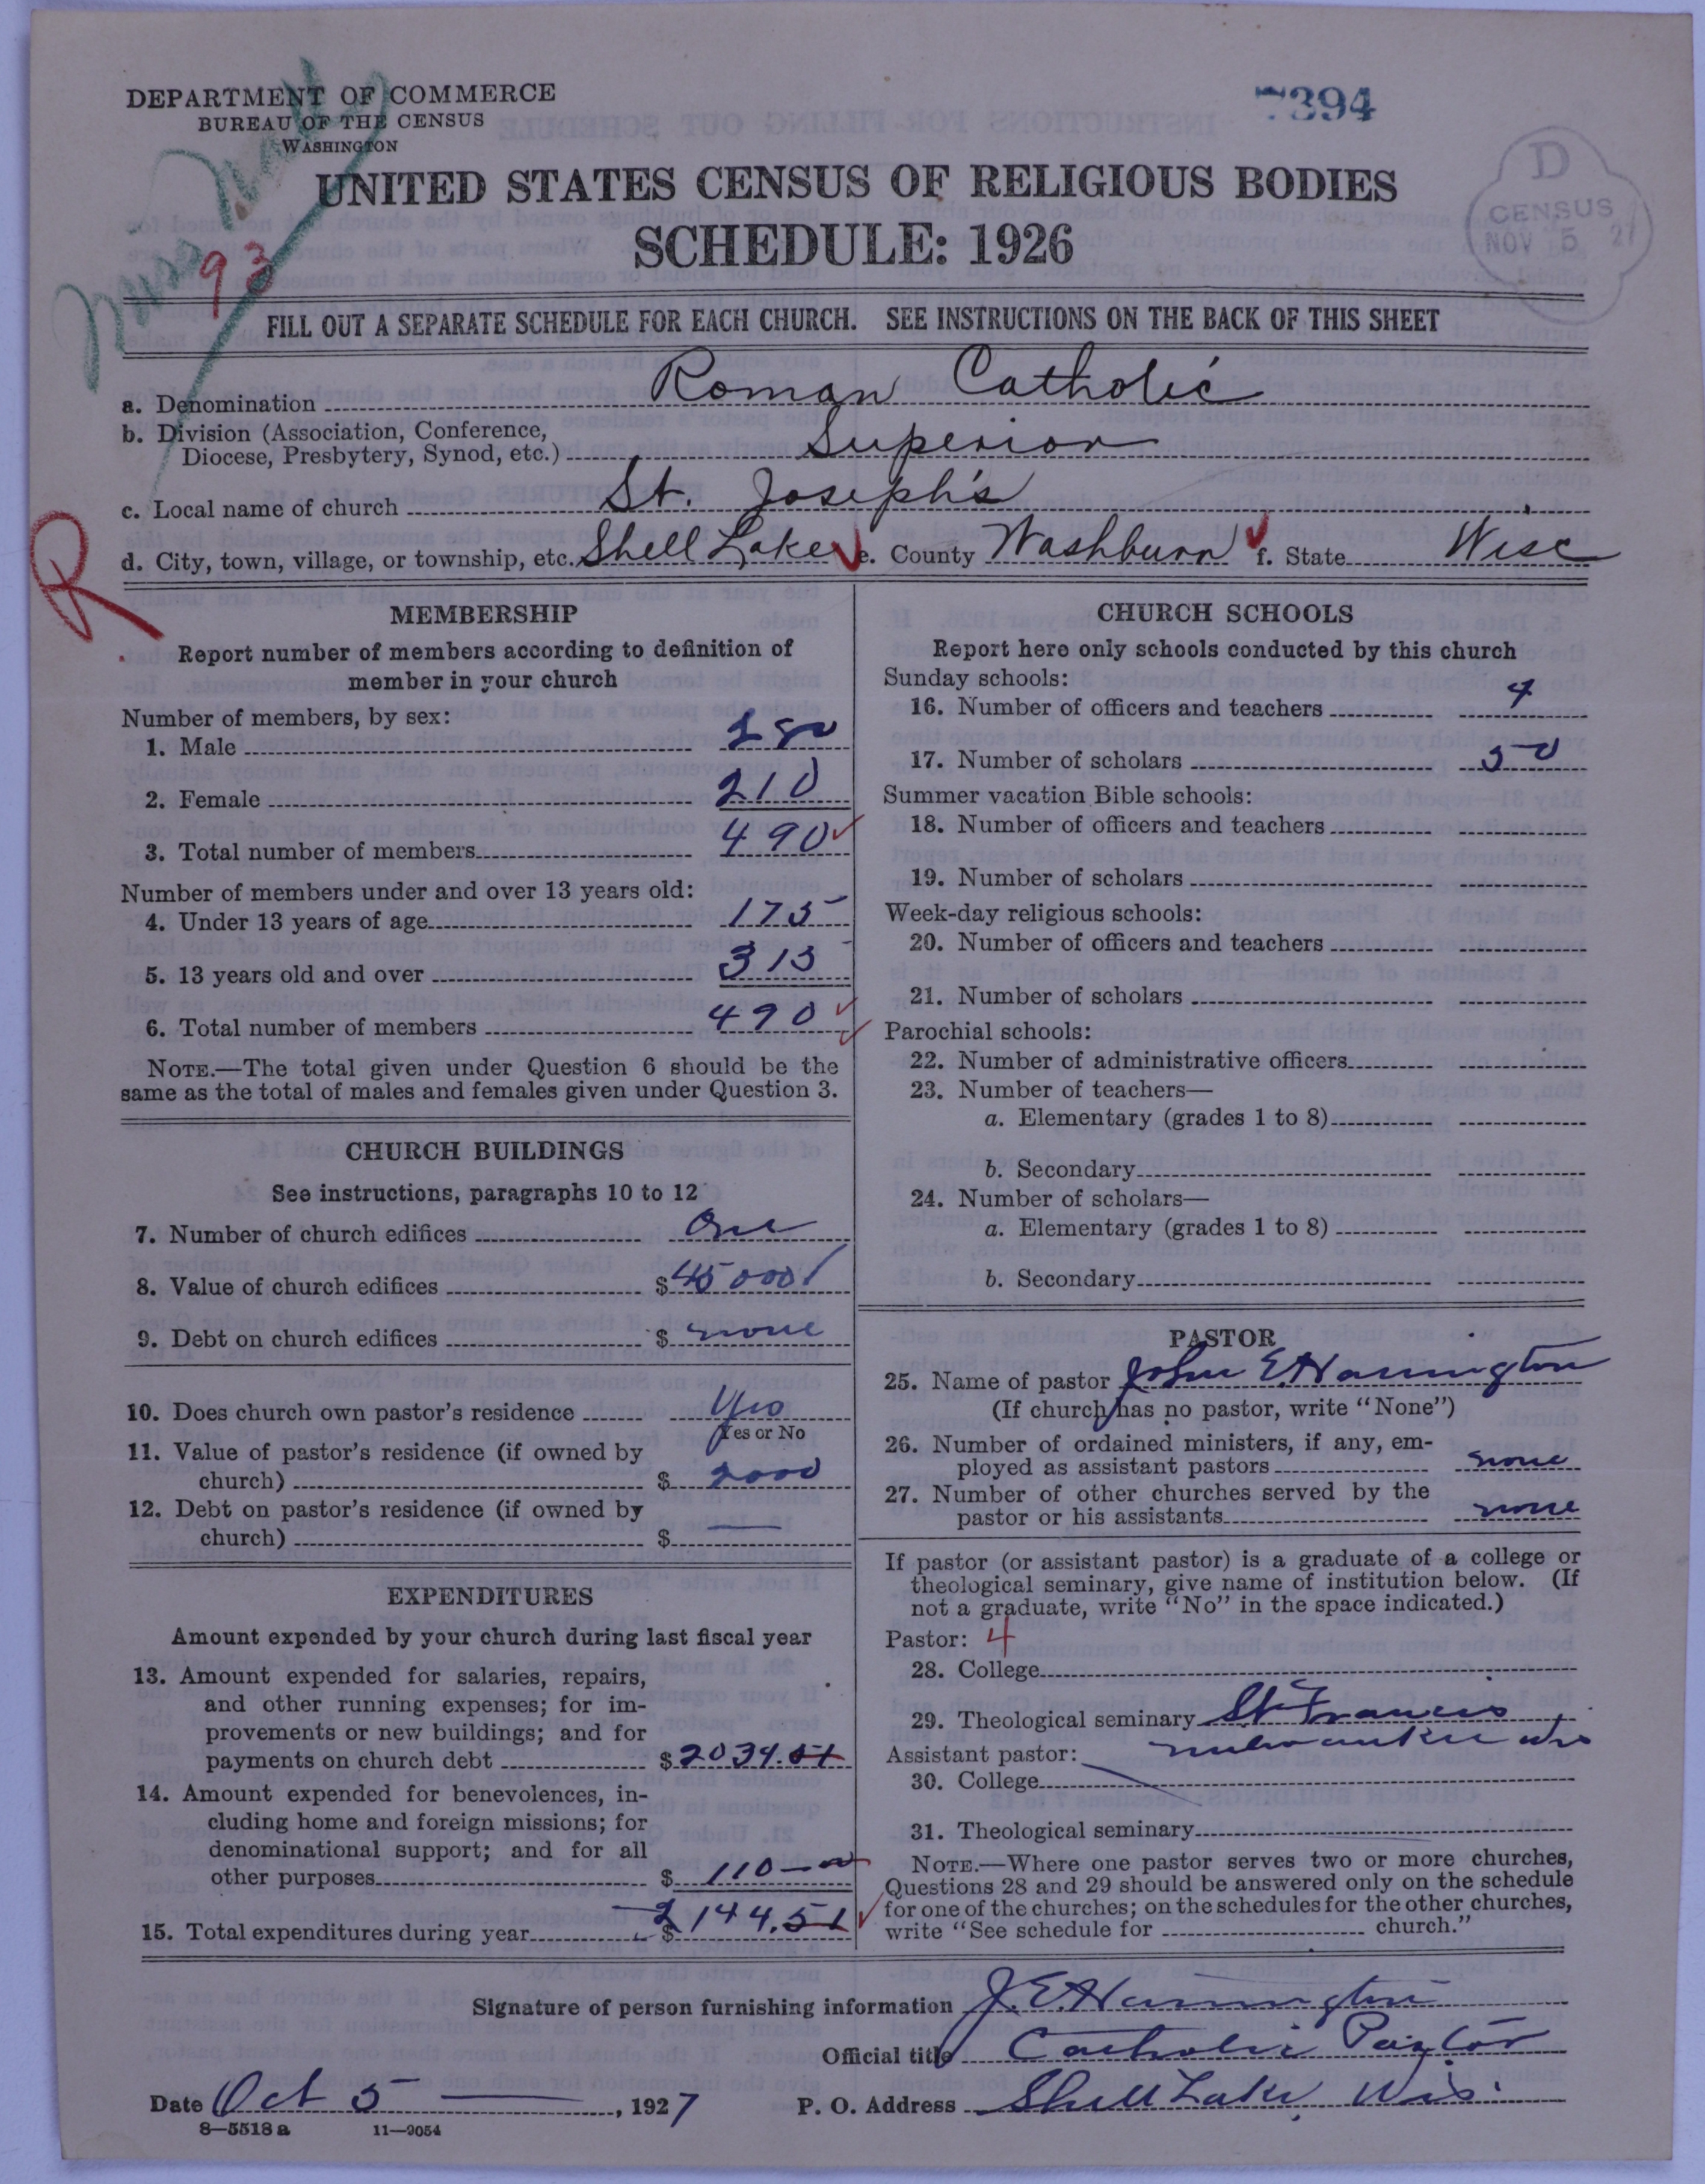 DEPARTMENT OF COMMERCE
BUREAU OF THE CENSUS
WASHINGTON
7394
D
CENSUS
NOV 5 27
93
UNITED STATES CENSUS OF RELIGIOUS BODIES
SCHEDULE: 1926
FILL OUT A SEPARATE SCHEDULE FOR EACH CHURCH. SEE INSTRUCTIONS ON THE BACK OF THIS SHEET
a. Denomination Roman Catholic
b. Division (Association, Conference,
Diocese, Presbytery, Synod, etc.) Superior
c. Local name of church St. Joseph's
d. City, town, village, or township, etc. Shell Lake e. County Washburn f. State Wisc
R
MEMBERSHIP
Report number of members according to definition of
member in your church
Number of members, by sex:
1. Male 280
2. Female 210
3. Total number of members 490
Number of members under and over 13 years old:
4. Under 13 years of age 175
5. 13 years old and over 315
6. Total number of members 490
NOTE.—The total given under Question 6 should be the
same as the total of males and females given under Question 3.
CHURCH BUILDINGS
See instructions, paragraphs 10 to 12
7. Number of church edifices One
8. Value of church edifices $45000
9. Debt on church edifices $ none
10. Does church own pastor's residence Yes
Yes or No
11. Value of pastor's residence (if owned by
church) $ 2000
12. Debt on pastor's residence (if owned by
church) $ —
EXPENDITURES
Amount expended by your church during last fiscal year
13. Amount expended for salaries, repairs,
and other running expenses; for im-
provements or new buildings; and for
payments on church debt $2034.51
14. Amount expended for benevolences, in-
cluding home and foreign missions; for
denominational support; and for all
other purposes $ 110—00
15. Total expenditures during year $ 2144.51
CHURCH SCHOOLS
Report here only schools conducted by this church
Sunday schools:
16. Number of officers and teachers 4
17. Number of scholars 50
Summer vacation Bible schools:
18. Number of officers and teachers
19. Number of scholars
Week-day religious schools:
20. Number of officers and teachers
21. Number of scholars
Parochial schools:
22. Number of administrative officers
23. Number of teachers—
a. Elementary (grades 1 to 8)
b. Secondary
24. Number of scholars—
a. Elementary (grades 1 to 8)
b. Secondary
PASTOR
25. Name of pastor John E. Harrington
(If church has no pastor, write "None")
26. Number of ordained ministers, if any, em-
ployed as assistant pastors none
27. Number of other churches served by the
pastor or his assistants none
If pastor (or assistant pastor) is a graduate of a college or
theological seminary, give name of institution below. (If
not a graduate, write "No" in the space indicated.)
Pastor: 4
28. College
29. Theological seminary St Francis
Assistant pastor: Milwaukee Wis
30. College
31. Theological seminary
NOTE.—Where one pastor serves two or more churches,
Questions 28 and 29 should be answered only on the schedule
for one of the churches; on the schedules for the other churches,
write "See schedule for church."
Signature of person furnishing information J. E. Harrington
Official title Catholic Pastor
Date Oct 5 —, 1927 P. O. Address Shell Lake, Wis.
8—5518 a 11—9054